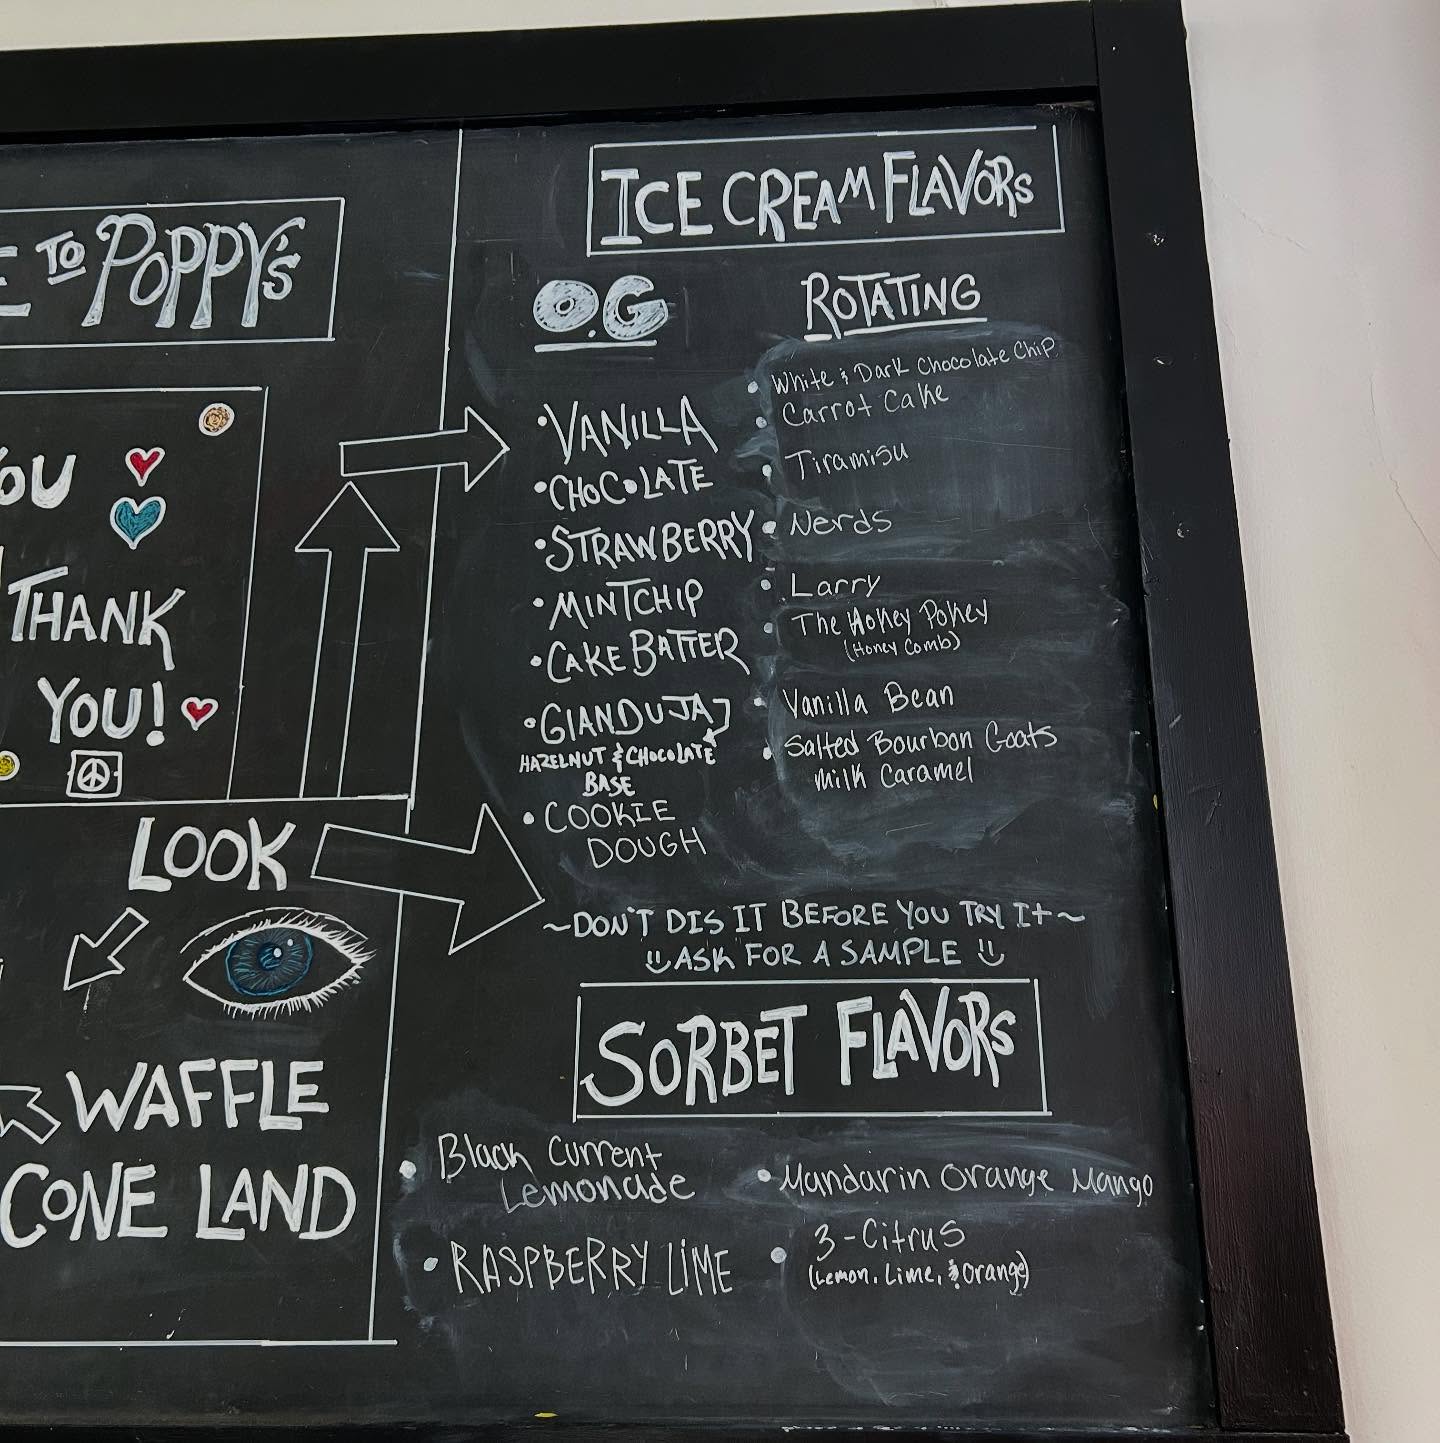 E TO POPPY'S
YOU
THANK
YOU!
LOOK
WAFFLE
CONE LAND
ICE CREAM FLAVORS
O.G
• VANILLA
• CHOCOLATE
• STRAWBERRY
• MINTCHIP
• CAKE BATTER
• GIANDUJA
HAZELNUT & CHOCOLATE
BASE
• COOKIE
DOUGH
ROTATING
• White & Dark Chocolate Chip
• Carrot Cake
• Tiramisu
• Nerds
• Larry
• The Hokey Pokey
(Honey Comb)
• Vanilla Bean
• Salted Bourbon Goats
Milk Caramel
~DON'T DIS IT BEFORE YOU TRY It~
ASK FOR A SAMPLE
SORBET FLAVORS
• Black Current
Lemonade
• RASPBERRY LIME
• Mandarin Orange Mango
• 3-Citrus
(Lemon, Lime, & Orange)